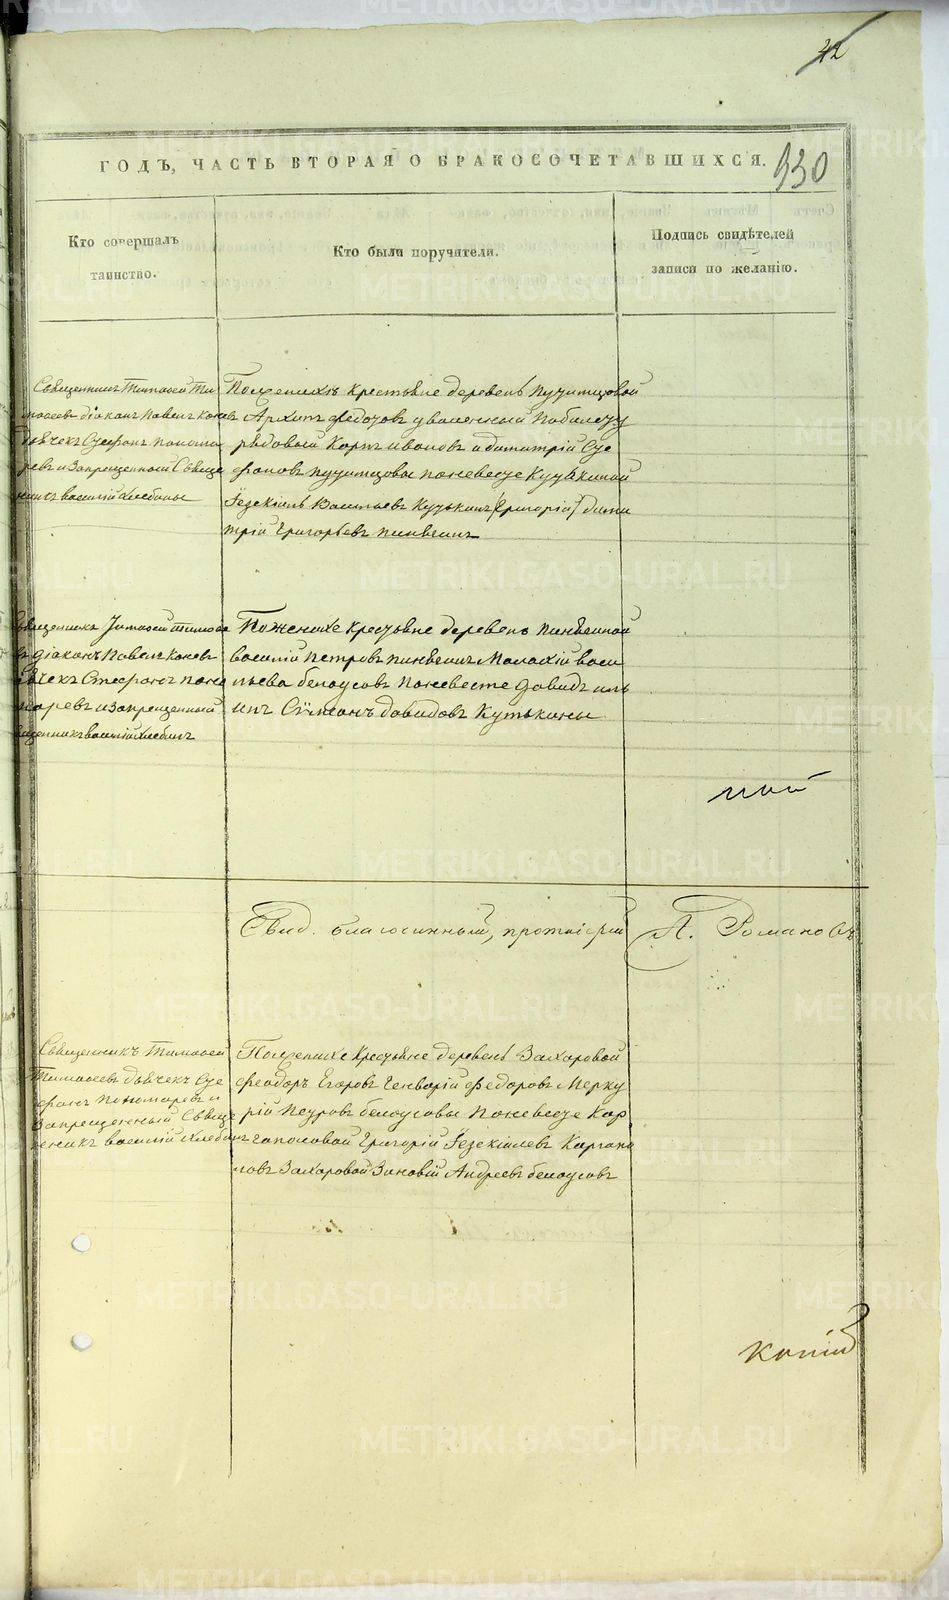 42
ГОДЪ, ЧАСТЬ ВТОРАЯ О БРАКОСОЧЕТАВШИХСЯ.
930
Кто совершалъ
таинство.
Кто были поручители.
Подпись свидѣтелей
записи по желанію.
Священникъ Тимофей Ти
мофеевъ діаконъ Павелъ Коневъ
дьячекъ Стефанъ Понома
ревъ и Запрещенной Свяще
никъ василій Хлебинъ
По женихѣ крестьяне деревень
Архипъ Федотовъ уволенный
рядовый Карпъ ивановъ и дмитрій Сте
фановъ по невесте Кузькиной
Іезекіиль Васильевъ Кузькинъ (Григорій) дими
трій Григорьевъ пинягинъ
Священникъ Тимофей Тимофе
въ діаконъ Павелъ Коневъ
дьячекъ Стефанъ Поно
маревъ и запрещенный
священникъ василій Хлебинъ
По женихе крестьяне деревень Пинягиной
василій петровъ пинягинъ Малафій васи
льевъ белоусовъ по невесте давидъ иль
инъ Сѵмеонъ давидовъ Кутькины
ной
Свид. благочинный, протоіерей А. Романовъ
Священникъ Тимофей
Тимофеевъ дьячекъ Сте
фанъ Пономаревъ и
Запрещенный Свяще
неникъ василій Хлебинъ
По женихе крестьяне деревень Захаровой
феодоръ Егоровъ Генварій Федоровъ Мерку
рій петровъ белоусовы по невесте Кар
гаполовой Григорій Іезекіилевъ Каргапо
ловъ Захаровой Зиновій Андреевъ белоусовъ
копій
METRIKI.GASO-URAL.RU